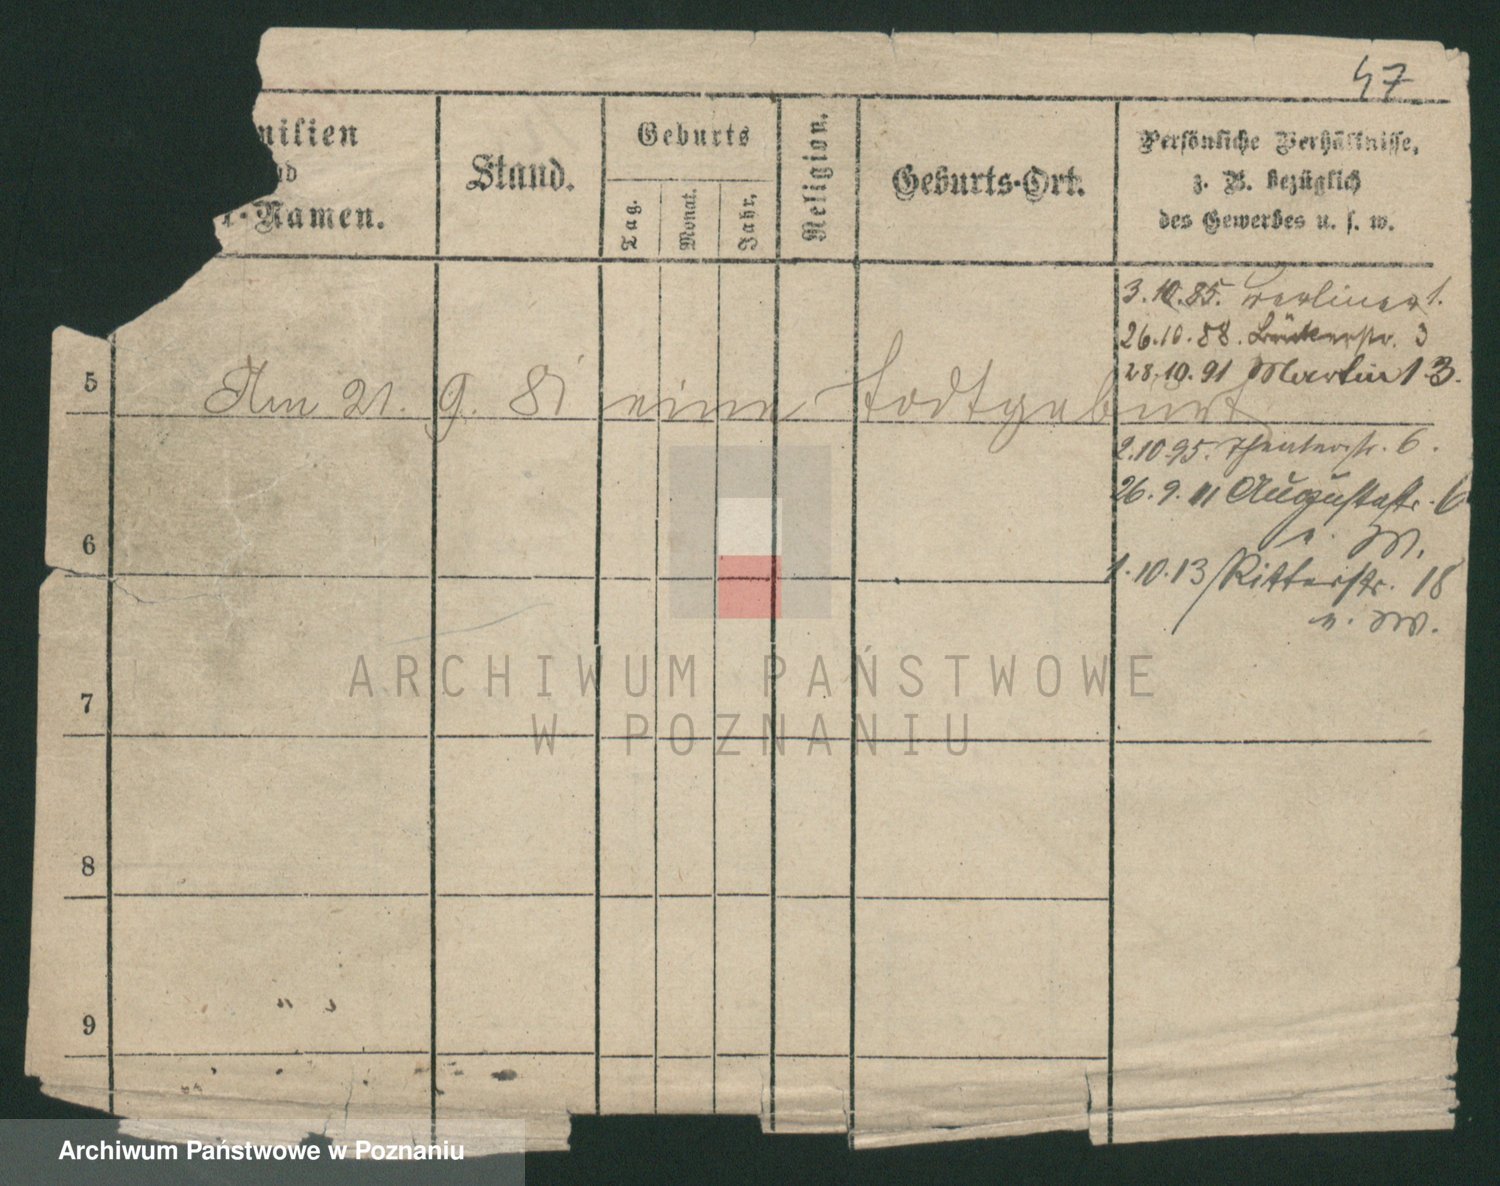 47
milien
nd
r-Namen.
Stand.
Geburts
Tag.
Monat.
Jahr.
Religion.
Geburts-Ort.
Persönliche Verhältnisse,
z. B. bezüglich
des Gewerbes u. s. w.
3.10.85. Berliner 1.
26.10.88. Bäckerstr. 3
28.10.91 Martin 13.
5
Am 21. 9. 81 eine Todtgeburt
2.10.95. Theaterstr. 6.
26.9.11 Augustastr. 6
v. W.
6
1.10.13 Ritterstr. 18
v. W.
7
8
9
ARCHIWUM PAŃSTWOWE
W POZNANIU
Archiwum Państwowe w Poznaniu